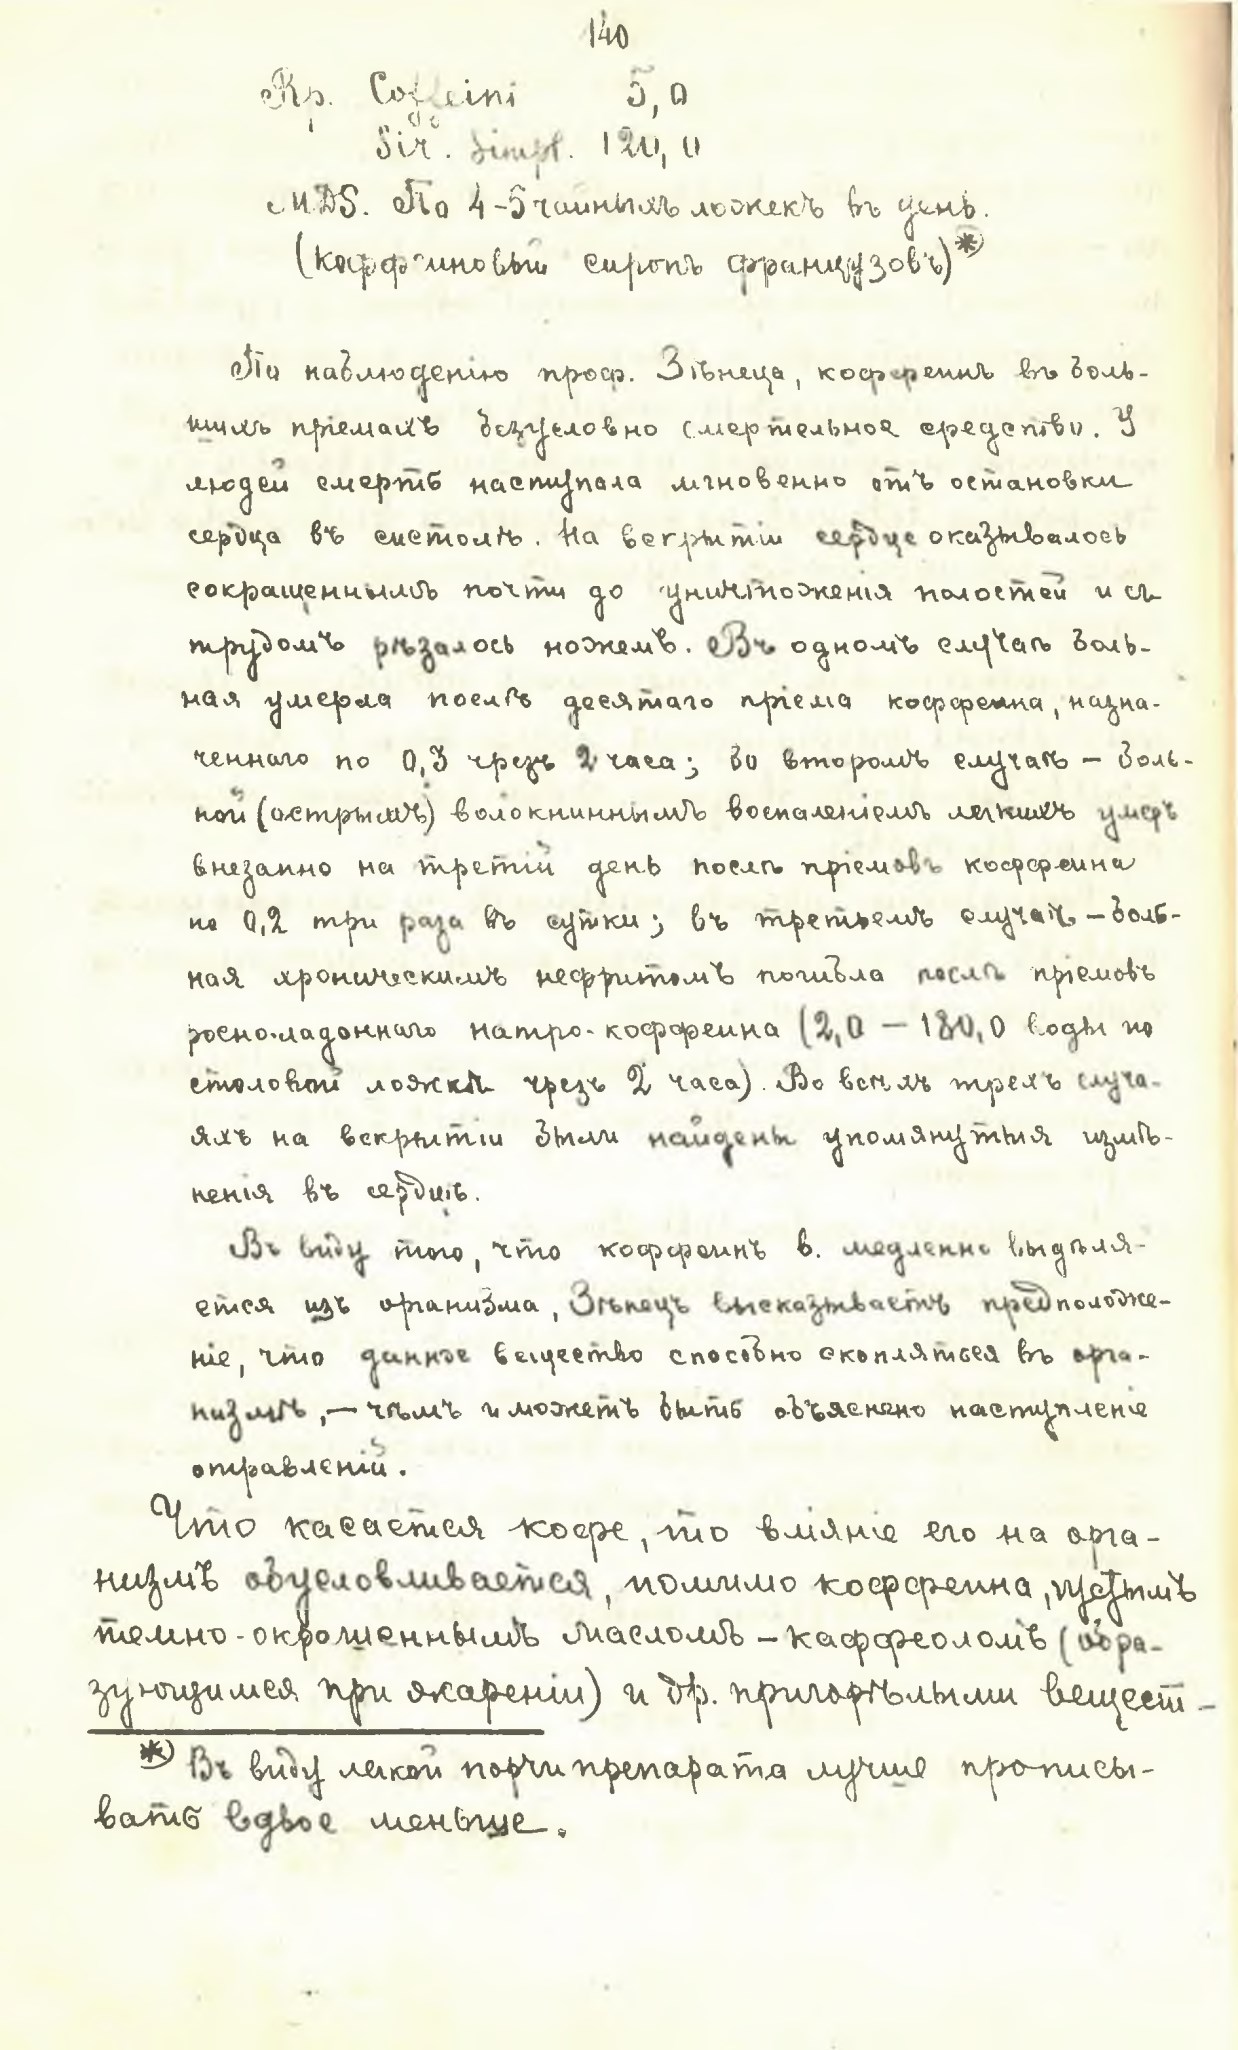 140
Rp. Coffeini 5,0
Sir. Simpl. 120,0
MDS. По 4-5 чайныхъ ложекъ въ день.
(Каффеиновый сиропъ французовъ)*)
По наблюденію проф. Зѣнеца, коффеинъ въ боль-
шихъ пріемахъ безусловно смертельное средство. У
людей смерть наступала мгновенно отъ остановки
сердца въ систолѣ. На вскрытіи сердце оказывалось
сокращеннымъ почти до уничтоженія полостей и съ
трудомъ рѣзалось ножемъ. Въ одномъ случаѣ боль-
ная умерла послѣ десятаго пріема коффеина, назна-
ченнаго по 0,3 чрезъ 2 часа; во второмъ случаѣ – боль-
ной (острымъ) волокниннымъ воспаленіемъ легкихъ умеръ
внезапно на третій день послѣ пріемовъ коффеина
по 0,2 три раза въ сутки; въ третьемъ случаѣ – боль-
ная хроническимъ нефритомъ погибла послѣ пріемовъ
росно-ладоннаго натро-коффеина (2,0 – 180,0 воды по
столовой ложкѣ чрезъ 2 часа). Во всѣхъ трехъ случа-
яхъ на вскрытіи были найдены упомянутыя измѣ-
ненія въ сердцѣ.
Въ виду того, что коффеинъ в. медленно выдѣля-
ется изъ организма, Зѣнецъ высказываетъ предположе-
ніе, что данное вещество способно скопляться въ орга-
низмѣ, – чѣмъ и можетъ быть объяснено наступленіе
отравленій.
Что касается кофе, то вліяніе его на орга-
низмъ обусловливается, помимо коффеина, густымъ
темно-окрашеннымъ масломъ – каффеоломъ (обра-
зующимся при жареніи) и др. пригорѣлыми вещест-
*) Въ виду легкой порчи препарата лучше прописы-
вать вдвое меньше.